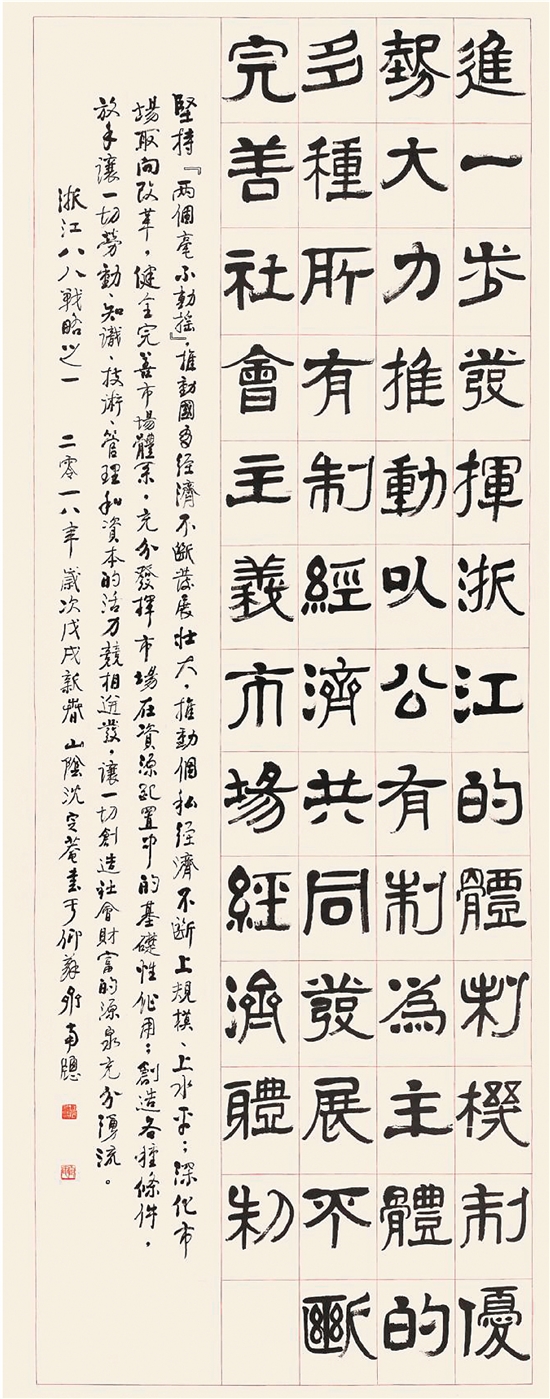 進一步發揮浙江的體制機制優
勢大力推動以公有制為主體的
多種所有制經濟共同發展不斷
完善社會主義市場經濟體制
堅持『两個毫不動搖』，推動國有經濟不斷發展壯大，推動個私經濟不斷上規模、上水平；深化市
場取向改革，健全完善市場體系，充分發揮市場在資源配置中的基礎性作用；創造各種條件，
放手讓一切勞動、知識、技術、管理和資本的活力競相迸發，讓一切創造社會財富的源泉充分湧流。
浙江八八戰略之一 二零一八年歲次戊戌新春 山陰沈定菴書于仰蘇 南窗